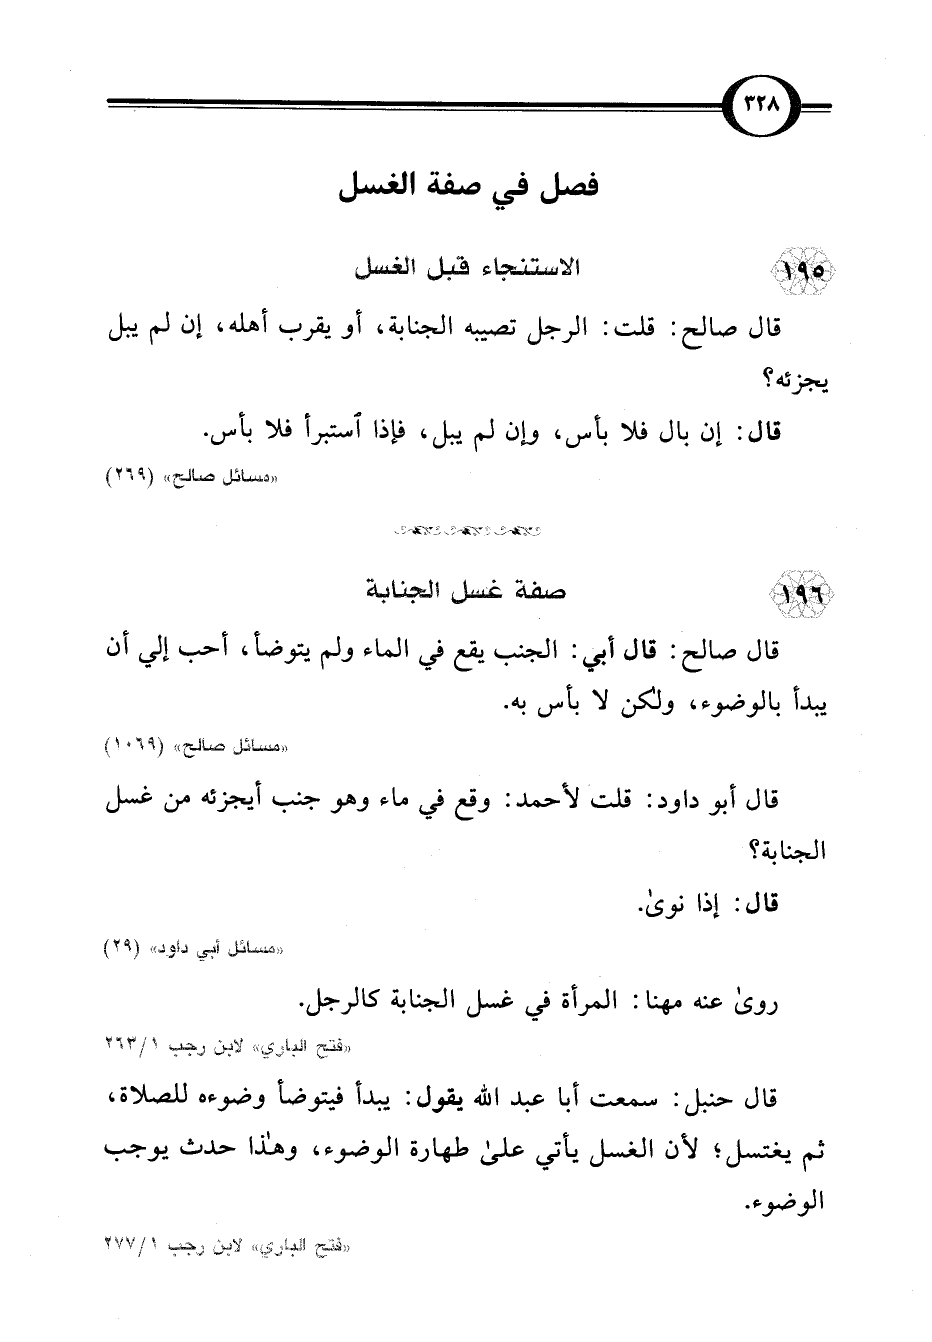 ٣٢٨
فصل في صفة الغسل
١٩٥ الاستنجاء قبل الغسل
قال صالح: قلت: الرجل تصيبه الجنابة، أو يقرب أهله، إن لم يبل
يجزئه؟
قال: إن بال فلا بأس، وإن لم يبل، فإذا ٱستبرأ فلا بأس.
«مسائل صالح» (٢٦٩)
١٩٦ صفة غسل الجنابة
قال صالح: قال أبي: الجنب يقع في الماء ولم يتوضأ، أحب إلي أن
يبدأ بالوضوء، ولكن لا بأس به.
«مسائل صالح» (١٠٦٩)
قال أبو داود: قلت لأحمد: وقع في ماء وهو جنب أيجزئه من غسل
الجنابة؟
قال: إذا نوىٰ.
«مسائل أبي داود» (٢٩)
روىٰ عنه مهنا: المرأة في غسل الجنابة كالرجل.
«فتح الباري» لابن رجب ٢٦٣/١
قال حنبل: سمعت أبا عبد الله يقول: يبدأ فيتوضأ وضوءه للصلاة،
ثم يغتسل؛ لأن الغسل يأتي علىٰ طهارة الوضوء، وهٰذا حدث يوجب
الوضوء.
«فتح الباري» لابن رجب ٢٧٧/١